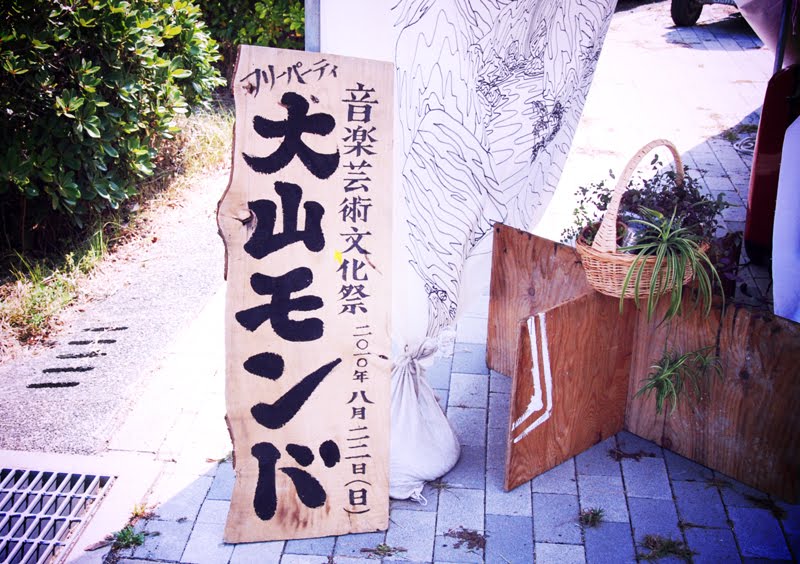 音楽芸術文化祭 二〇一〇年 八月二二日(日)
フリーパーティ
大山モンド